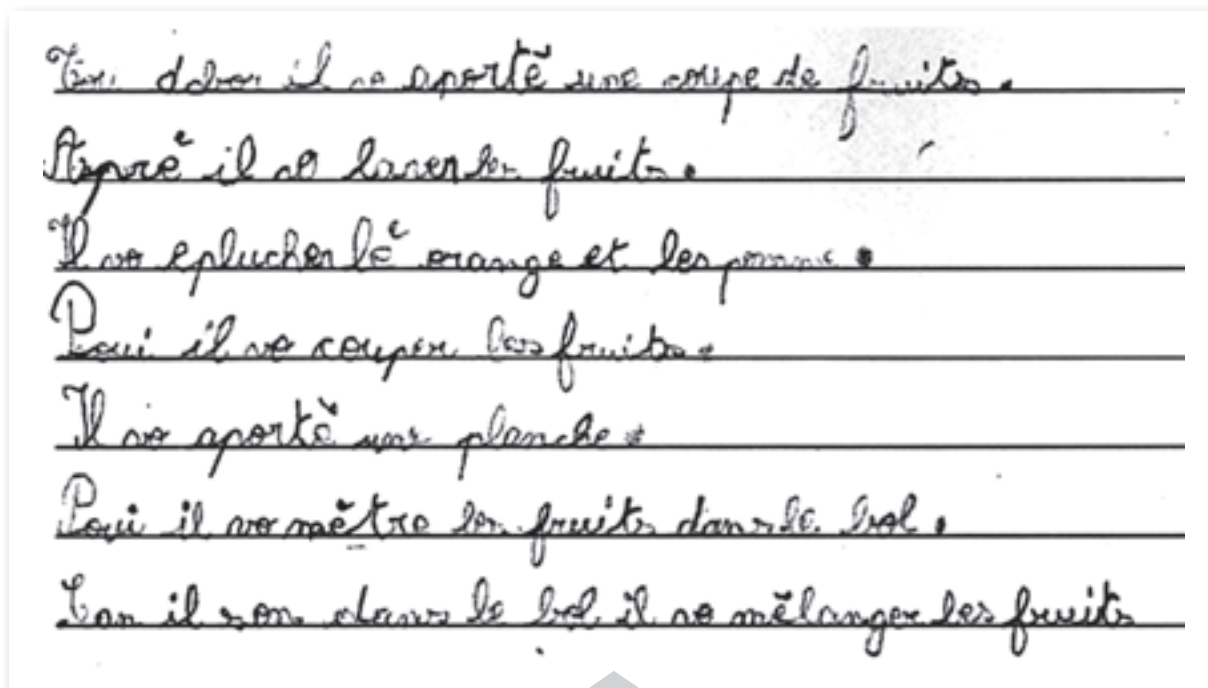 dabor il va aporté une coupe de fruits.
Aprré il va laver les fruits.
Il va eplucher lé orange et les pomme.
Poui il va couper les fruits.
Il va aporté une planche.
Poui il va mètre les fruits dans le bol.
il son dans le bol il va mélanger les fruits